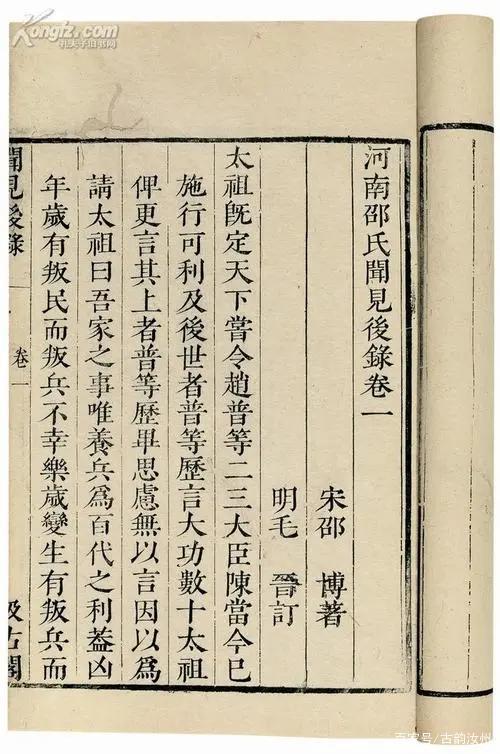 Kongfz.com
孔夫子旧书网
河南邵氏聞見後錄卷一
宋邵 博著
明毛 晉訂
太祖旣定天下嘗令趙普等二三大臣陳當今已
施行可利及後世者普等歷言大功數十太祖
俾更言其上者普等歷畢思慮無以言因以爲
請太祖曰吾家之事唯養兵爲百代之利葢凶
年歲有叛民而叛兵不幸樂歲變生有叛兵而
聞見後錄 卷一 汲古閣
百家号/古韵汝州